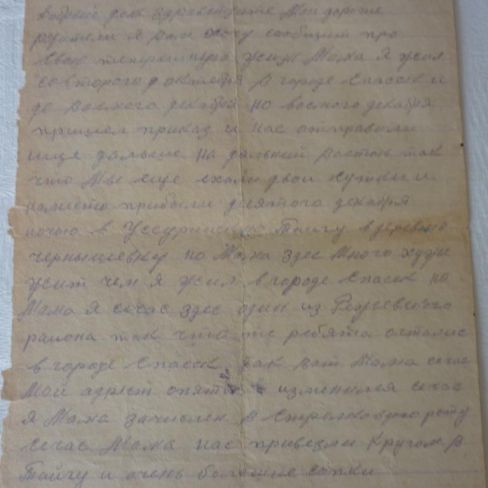 добрые день здравствуйте Мои дорогие
родители я вам хочу сообщит про
свою теперешнюю жизн Мама я жил
со второго октября в городе Спасск и
до восмого декабря но восмого декабря
пришел приказ и нас отправили
ище дальше на дальний восток так
что Мы еще ехали двои сутки и
на место прибыли девятого декабря
ночью в Уссурийскую Тайгу в деревню
чернышевку но Мама здес много хуже
жит чем я жил в городе Спасск но
Мама я сечас здес один из Режевского
района так что те ребята осталис
в городе Спасск так вот Мама сечас
Мой адрест опят изменился сечас
я Мама зачислен в Стрелковую роту
сечас Мама нас привезли кругом в
Тайгу и очень большие сопки